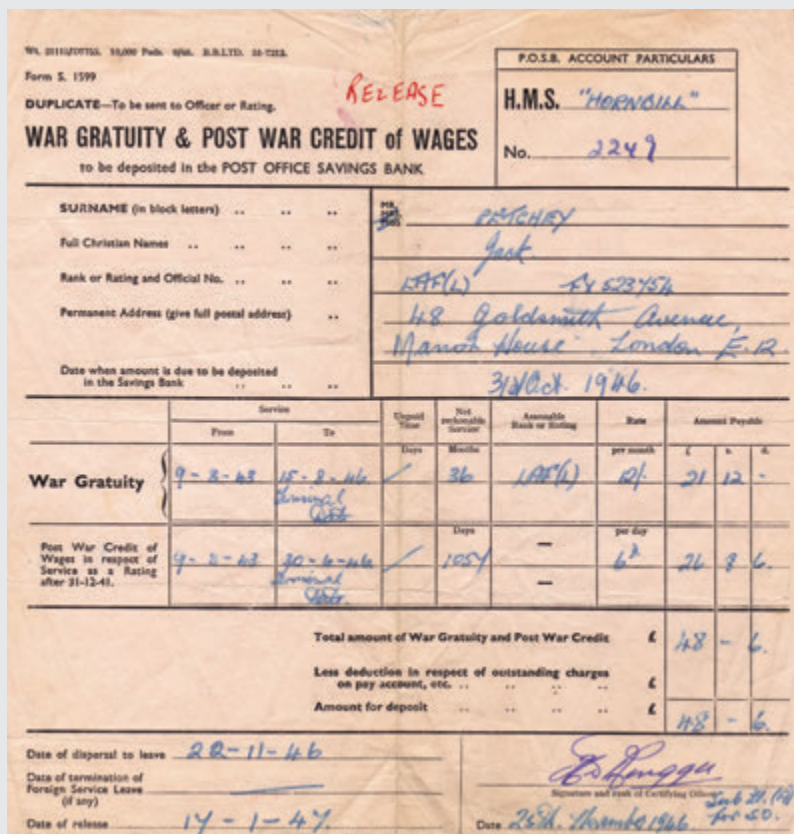 Form S. 1599
DUPLICATE—To be sent to Officer or Rating.
RELEASE
WAR GRATUITY & POST WAR CREDIT of WAGES
to be deposited in the POST OFFICE SAVINGS BANK
P.O.S.B. ACCOUNT PARTICULARS
H.M.S. "HORNBILL"
No. 2249
SURNAME (in block letters) .. .. .. PETCHEY
Full Christian Names .. .. .. .. Jack
Rank or Rating and Official No. .. .. .. LAF(L)
Permanent Address (give full postal address) .. 48 Goldsmith Avenue,
Manor House London E.12
Date when amount is due to be deposited
in the Savings Bank .. .. .. 31st Oct. 1946.
Service
From To
Unpaid Time
Not reckonable Service
Assessable Rank or Rating
Rate
Amount Payable
Days Months per month £ s. d.
War Gratuity 9-8-43 15-8-46 / 36 LAF(L) 12/- 21 12 -
Terminal
Date
Days per day
Post War Credit of
Wages in respect of
Service as a Rating
after 31-12-41.
9-8-43 30-6-46 / 1057 — 6d 26 8 6.
Terminal
Date.
—
Total amount of War Gratuity and Post War Credit £ 48 - 6.
Less deduction in respect of outstanding charges
on pay account, etc. .. .. .. .. £
Amount for deposit .. .. .. .. £ 48 - 6.
Date of dispersal to leave 22-11-46
Date of termination of
Foreign Service Leave
(if any)
Date of release 17-1-47.
Signature and rank of Certifying Officer
Date 25th November 1946
for SO.